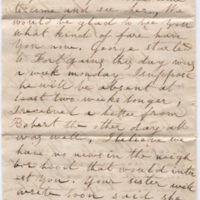 to come and see
would be glad to see you
what kind of fare have
you now. George started
to Fort going this day was
a week monday. I suppose
he will be absent at
least two weeks longer,
I received a letter from
Robert the other day all
was well, I believe we
have no news in the neigh
that would inter
est you. Your sister will
write soon said she